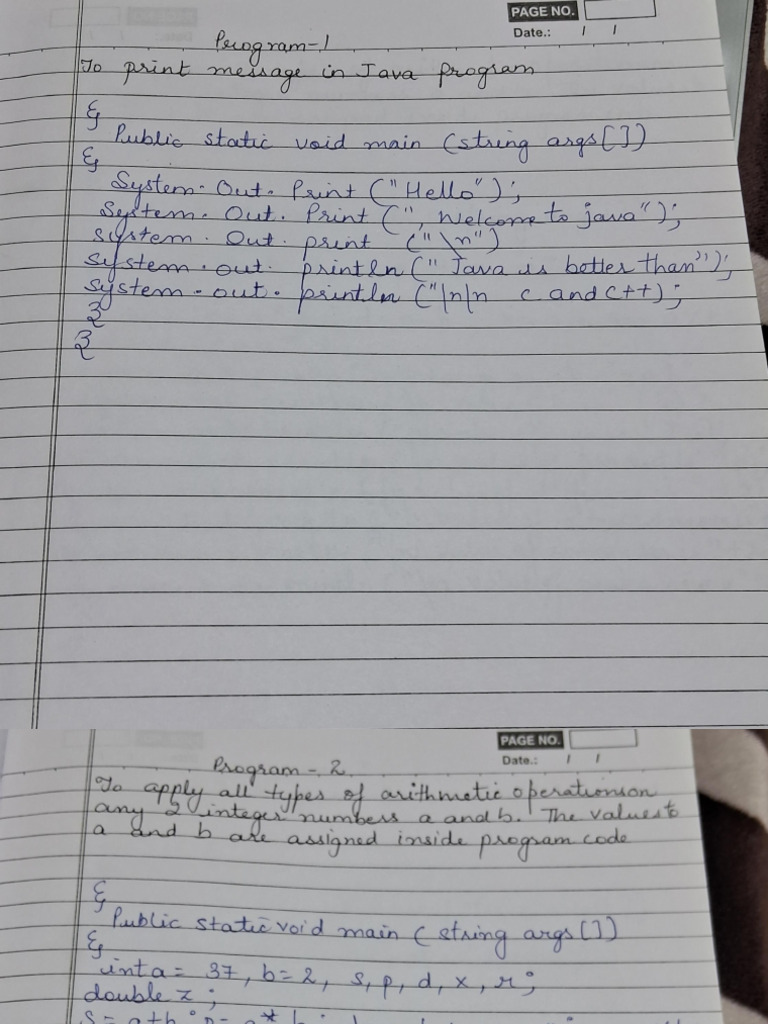 PAGE NO.
Date.: / /
Program-1
To print message in Java program
{
Public static void main (string args[])
{
System. Out. Print ("Hello");
System. Out. Print (", Welcome to java");
system. Out. print ("\n")
system. out. println ("Java is better than");
system. out. println ("\n\n c and c++);
}
}
PAGE NO.
Date.: / /
Program - 2
To apply all types of arithmetic operationson
any 2 integer numbers a and b. The values to
a and b are assigned inside program code
{
Public static void main ( string args[])
{
int a = 37, b = 2, s, p, d, x, r;
double z;